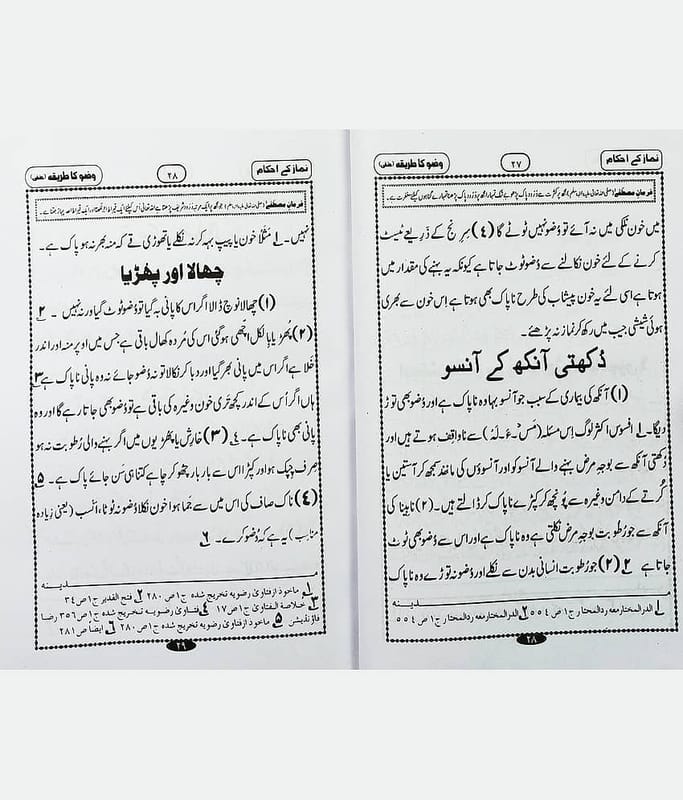 نماز کے احکام
٢٧
وضو کا طریقہ (حنفی)
میں خون نکلی میں نہ آئے تو وضو نہیں ٹوٹے گا (٤) سرنج کے ذریعے ٹیسٹ
کرنے کے لئے خون نکالنے سے وُضو ٹوٹ جاتا ہے کیونکہ یہ بہنے کی مقدار میں
ہوتا ہے اسی لئے یہ خون پیشاب کی طرح ناپاک بھی ہوتا ہے اِس خون سے بھری
ہوئی شیشی جیب میں رکھ کر نماز نہ پڑھئے۔
دُکھتی آنکھ کے آنسو
(١) آنکھ کی بیماری کے سبب جو آنسو بہا وہ ناپاک ہے اور وُضو بھی توڑ
دیگا۔ لے افسوس اکثر لوگ اِس مسئلہ (مَسْ۔ءَ۔لَہ) سے ناواقِف ہوتے ہیں اور
دُکھتی آنکھ سے بوجہِ مرض بہنے والے آنسو کو اور آنسوؤں کی مانند سمجھ کر آستین یا
کُرتے کے دامن وغیرہ سے پُونچھ کر کپڑے ناپاک کر ڈالتے ہیں۔ (٢) نابینا کی
آنکھ سے جو رَطوبت بوجہِ مرض نکلتی ہے وہ ناپاک ہے اور اس سے وُضو بھی ٹوٹ
جاتا ہے ٢ (٢) جو رَطوبت انسانی بدن سے نکلے اور وُضو نہ توڑے وہ ناپاک
مدینہ
١ الدر المختار معہ رد المحتار ج١ ص ٥٥٤ ٢ الدر المختار معہ رد المحتار ج١ ص ٥٥٤
٢٨
نماز کے احکام
٢٨
وضو کا طریقہ (حنفی)
نہیں۔ لے مثلاً خون یا پیپ بہہ کر نہ نکلے یا تھوڑی قے کہ منہ بھر نہ ہو پاک ہے۔
چھالا اور پھڑیا
(١) چھالا نوچ ڈالا اگر اس کا پانی بہ گیا تو وُضو ٹوٹ گیا ورنہ نہیں۔ ٢
(٢) پُھڑیا بالکل اچھی ہو گئی اس کی مُردہ کھال باقی ہے جس میں اوپر منہ اور اندر
خَلا ہے اگر اس میں پانی بھر گیا اور دبا کر نکالا تو نہ وُضو جائے نہ وہ پانی ناپاک ہے ٣
ہاں اگر اُس کے اندر کچھ تَری خون وغیرہ کی باقی ہے تو وُضو بھی جاتا رہے گا اور وہ
پانی بھی ناپاک ہے۔ ٤ (٣) خارِش یا پھڑیوں میں اگر بہنے والی رُطوبت نہ ہو
صِرف چپک ہو اور کپڑا اس سے بار بار چھو کر چاہے کتنا ہی سَن جائے پاک ہے۔ ٥
(٤) ناک صاف کی اس میں سے جَما ہوا خون نکلا وُضو نہ ٹوٹا، اَنسَب (یعنی زیادہ
مناسب) یہ ہے کہ وُضو کرے۔ ٦
مدینہ
١ ماخوذ از فتاویٰ رضویہ تخریج شدہ ج١ ص ٢٨٠ ٢ فتح القدیر ج١ ص ٣٤
٣ خلاصۃ الفتاویٰ ج١ ص ١٧ ٤ فتاویٰ رضویہ تخریج شدہ ج١ ص ٣٥٦ رضا
فاؤنڈیشن ٥ ماخوذ از فتاویٰ رضویہ تخریج شدہ ج١ ص ٢٨٠ ٦ ایضاً ص ٢٨١
٢٩